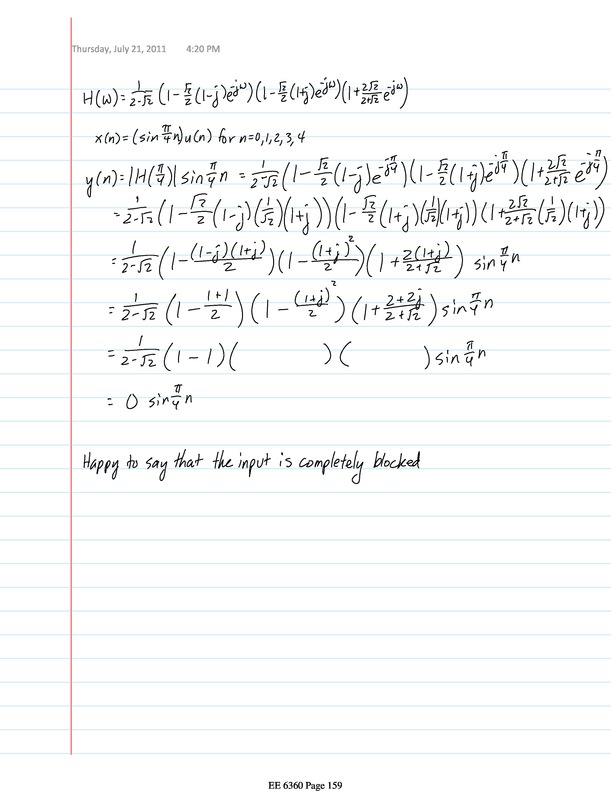 Thursday, July 21, 2011 4:20 PM
H(ω) = 1/(2-√2) (1 - √2/2 (1-j)e^-jω)(1 - √2/2 (1+j)e^-jω)(1 + 2√2/(2+√2) e^-jω)
x(n) = (sin π/4 n)u(n) for n=0,1,2,3,4
y(n) = |H(π/4)| sin π/4 n = 1/(2-√2) (1 - √2/2 (1-j)e^-jπ/4)(1 - √2/2 (1+j)e^-jπ/4)(1 + 2√2/(2+√2) e^-jπ/4)
= 1/(2-√2) (1 - √2/2 (1-j)(1/√2)(1+j))(1 - √2/2 (1+j)(1/√2)(1+j))(1 + 2√2/(2+√2) (1/√2)(1+j))
= 1/(2-√2) (1 - (1-j)(1+j)/2)(1 - (1+j)²/2)(1 + 2(1+j)/(2+√2)) sin π/4 n
= 1/(2-√2) (1 - (1+1)/2)(1 - (1+j)²/2)(1 + (2+2j)/(2+√2)) sin π/4 n
= 1/(2-√2) (1 - 1)( )( ) sin π/4 n
= 0 sin π/4 n
Happy to say that the input is completely blocked
EE 6360 Page 159